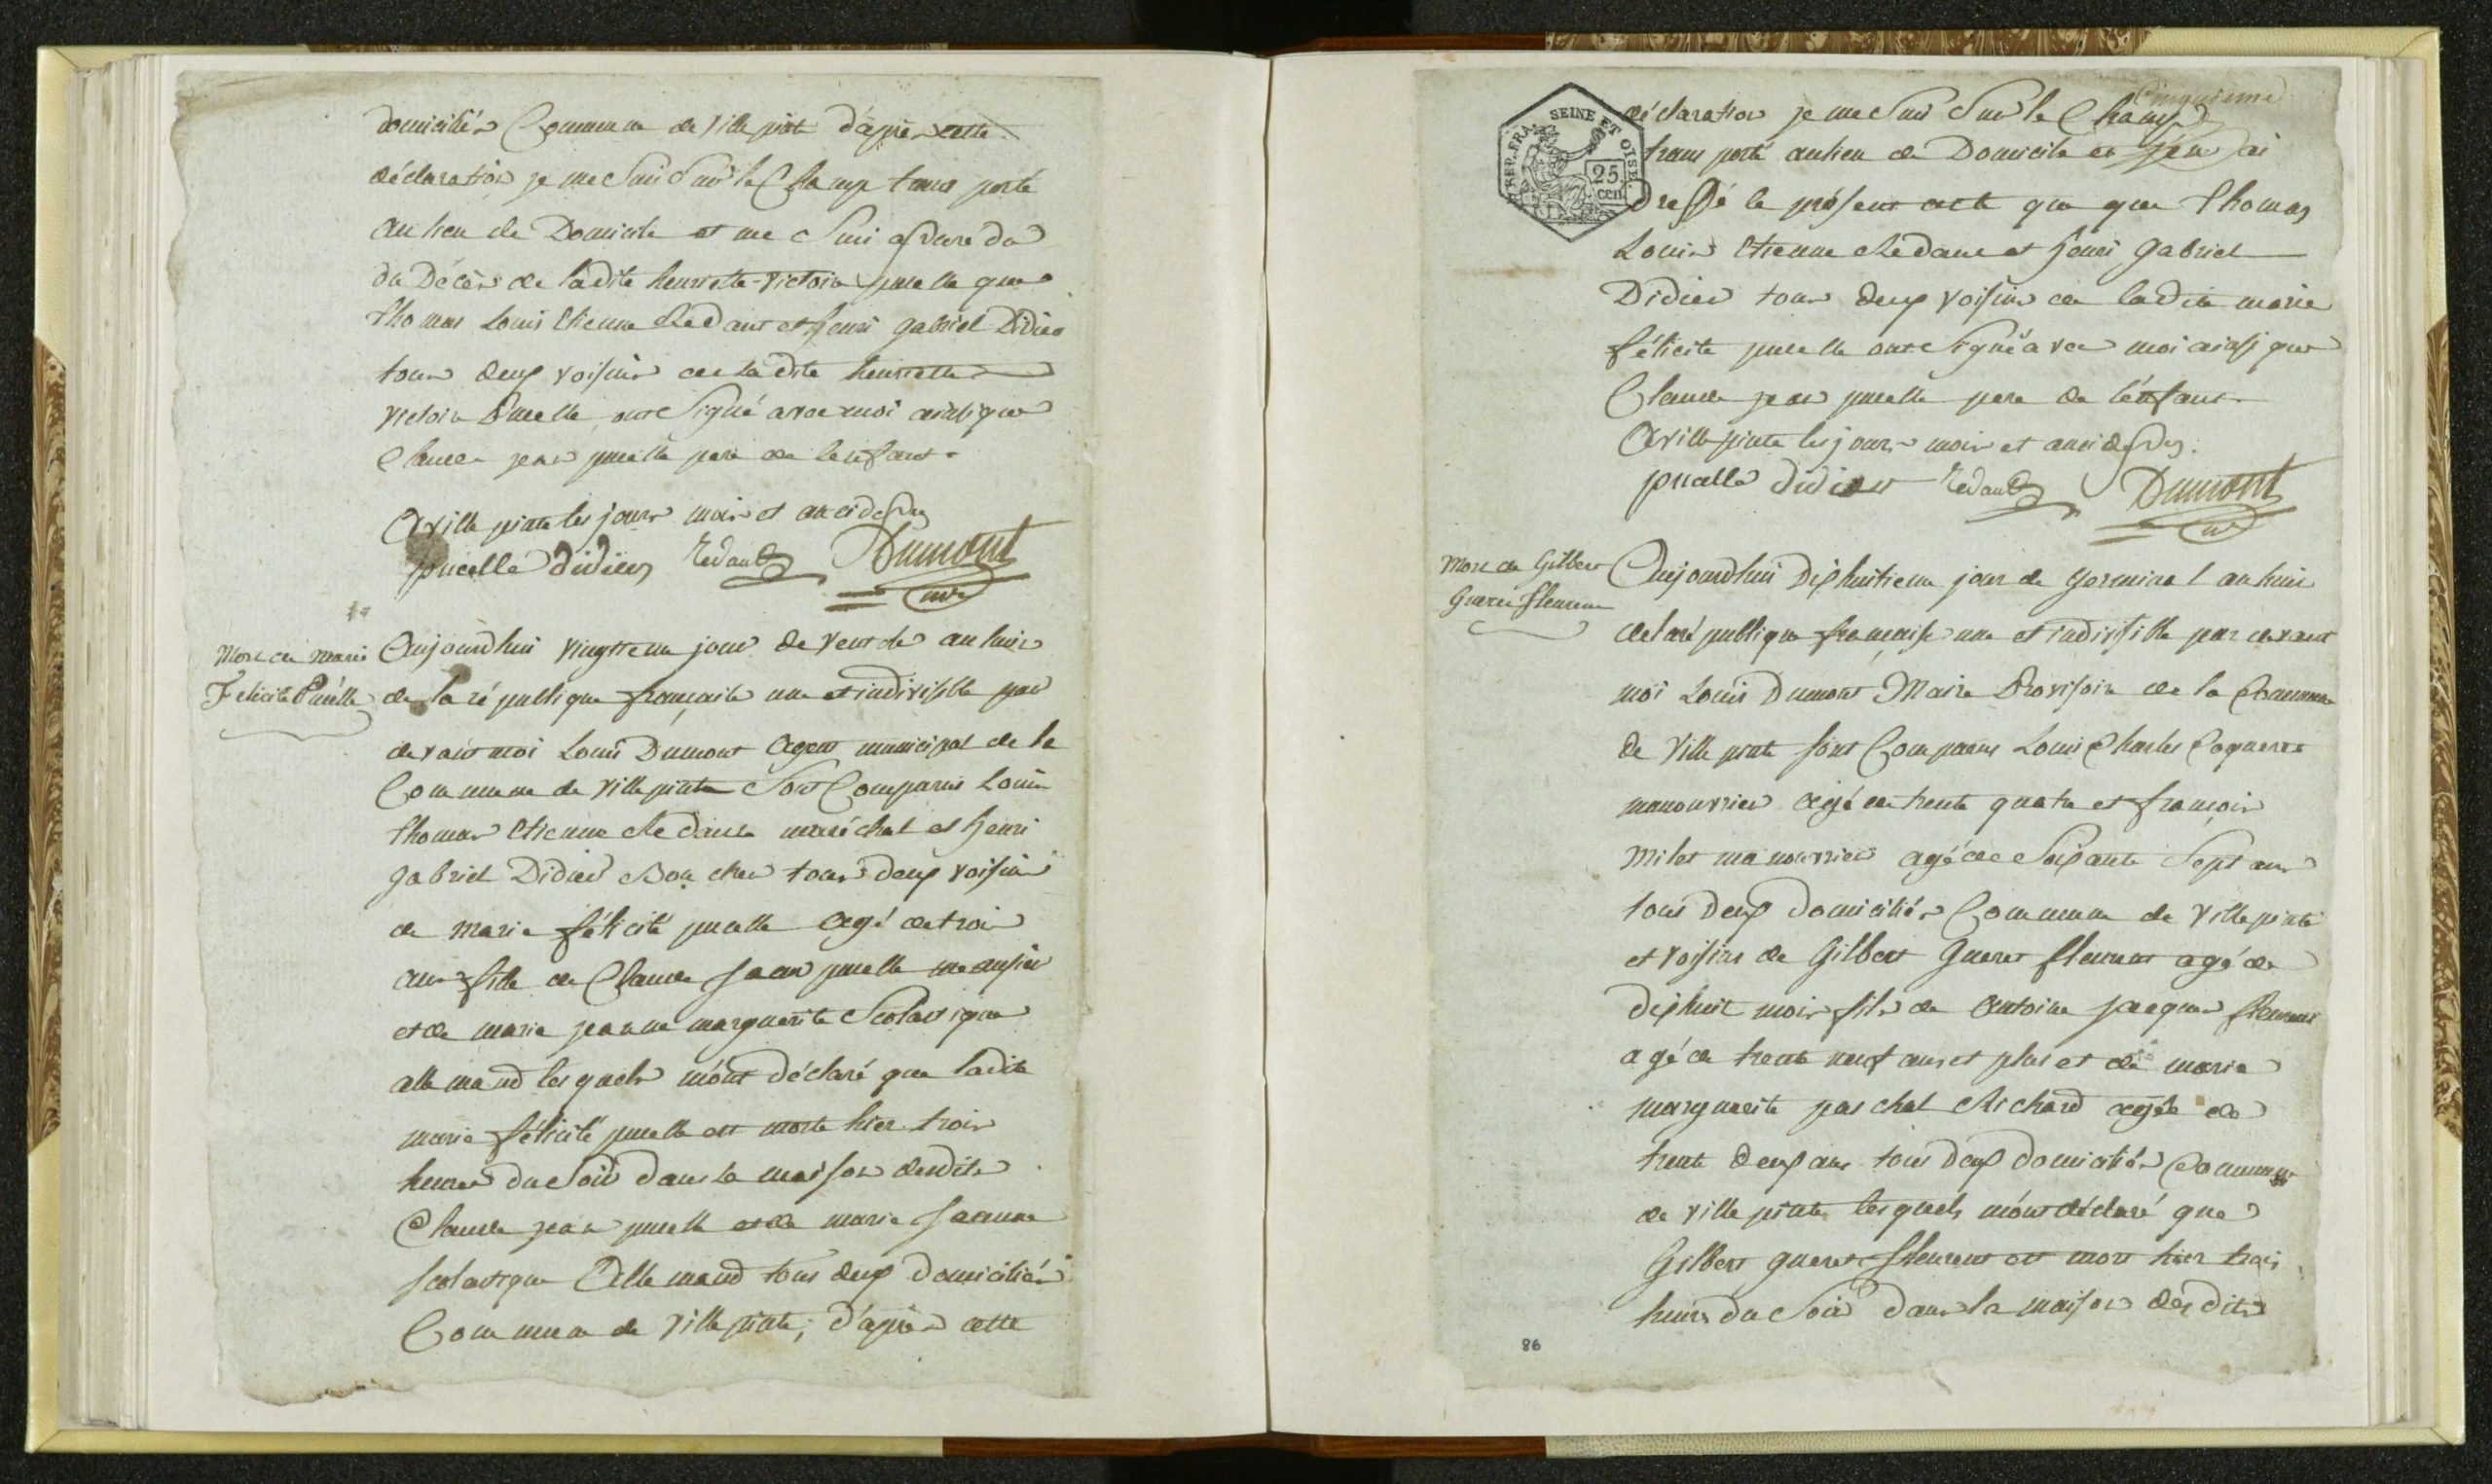 domiciliés Commune de Ville pinte d'après cette
déclaration je me suis sur le Champ trans porté
au lieu de Domicile et me suis assuré du
du Décès de ladite henriette-victoire pucelle que
thomas Louis Etienne Redaut et henri gabriel Didier
tous deux voisins de ladite henriette
victoire Pucelle, ont Signé avec moi ainsi que
Claude jean pucelle pere de l'enfant.
A ville pinte les jours mois et an ci dessus
pucelle didier Redault Dumont
Mort de marie
Félicité Pucelle
Aujourdhui vingtieme jour de ventose an huit
de la république française une et indivisible par
devant moi Louis Dumont Agent municipal de la
Commune de Ville pinte Sont Comparus Louis
thomas Etienne Redault maréchal et henri
gabriel Didier Boucher tous deux voisins
de marie félicité pucelle agé de trois
ans fille de Claude jean pucelle
et de marie jeanne marguerite Scolastique
allemand lesquels m'ont déclaré que ladite
marie félicité pucelle est morte hier trois
heures du Soir dans la maison desdits
Claude jean pucelle et de marie jeanne
scolastique Allemand tous deux domiciliés
Commune de Ville pinte, d'après cette
Cinquieme
REP. FRA. SEINE ET OISE
25 cen
déclaration je me suis Sur le Champ
trans porté au lieu de Domicile et j'en ai
Dressé le présent acte que que thomas
Louis Etienne Redaut et henri gabriel
Didier tous deux voisins de ladite marie
félicité pucelle ont signé avec moi ainsi que
Claude jean pucelle pere de l'enfant.
A ville pinte les jours mois et an ci dessus.
pucelle didier Redault Dumont
Mort de Gilbert
Gueret fleurent
Aujourdhui Dixhuitieme jour de germinal an huit
de la république française une et indivisible par devant
moi Louis Dumont Maire Provisoire de la Commune
de Ville pinte sont Comparus Louis Charles Coqueret
manouvrier agé de trente quatre et françois
Milet manouvrier agé de Soixante Sept ans
tous deux domiciliés Commune de Ville pinte
et voisins de Gilbert Gueret fleurent agé de
dixhuit mois fils de Antoine jacques fleurent
agé de trente neuf ans et plus et de marie
marguerite paschal Richard agée de
trente deux ans tous deux domiciliés Commune
de Ville pinte lesquels m'ont déclaré que
Gilbert gueret fleurent est mort hier trois
heures du Soir dans la maison des dits
86